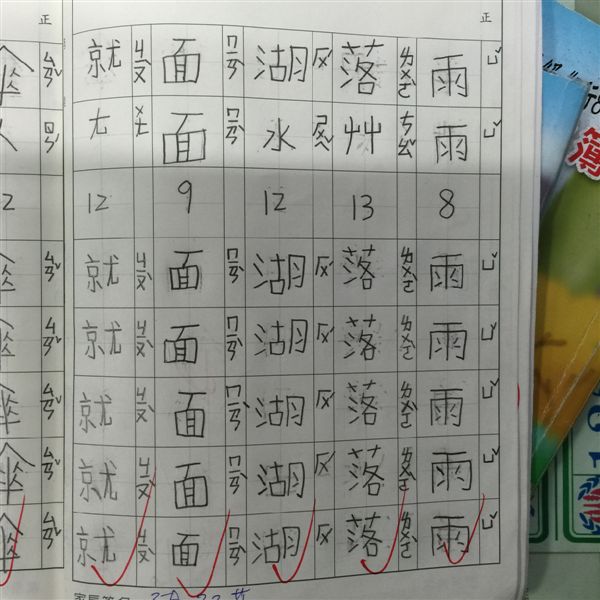 正 正
雨 ㄩˇ 雨 ㄩˇ 8 雨 ㄩˇ 雨 ㄩˇ 雨 ㄩˇ 雨 ㄩˇ 雨 ㄩˇ
落 ㄌㄨㄛˋ 艸 ㄘㄠˇ 13 落 ㄌㄨㄛˋ 落 ㄌㄨㄛˋ 落 ㄌㄨㄛˋ 落 ㄌㄨㄛˋ 落 ㄌㄨㄛˋ
湖 ㄏㄨˊ 水 ㄕㄨㄟˇ 12 湖 ㄏㄨˊ 湖 ㄏㄨˊ 湖 ㄏㄨˊ 湖 ㄏㄨˊ 湖 ㄏㄨˊ
面 ㄇㄧㄢˋ 面 ㄇㄧㄢˋ 9 面 ㄇㄧㄢˋ 面 ㄇㄧㄢˋ 面 ㄇㄧㄢˋ 面 ㄇㄧㄢˋ 面 ㄇㄧㄢˋ
就 ㄐㄧㄡˋ 尢 ㄨㄤ 12 就 ㄐㄧㄡˋ 就 ㄐㄧㄡˋ 就 ㄐㄧㄡˋ 就 ㄐㄧㄡˋ 就 ㄐㄧㄡˋ
傘 ㄙㄢˇ 人 ㄖㄣˊ 2 傘 ㄙㄢˇ 傘 ㄙㄢˇ 傘 ㄙㄢˇ 傘 ㄙㄢˇ 傘 ㄙㄢˇ
簿